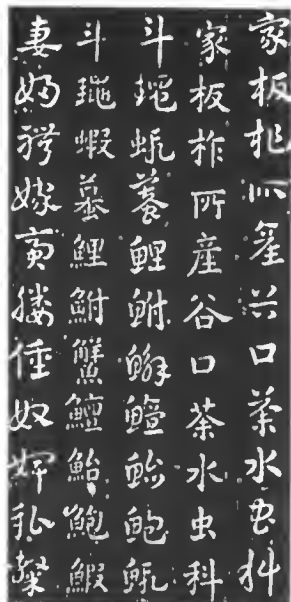 家板柞所產谷口茶水虫科
家板柞所產谷口茶水虫科
斗蝦蟇鯉鮒鱣鮐鮑鰕
斗蝦蟇鯉鮒鱣鮐鮑鰕
妻婦聘嫁賷媵僮奴婢私隸